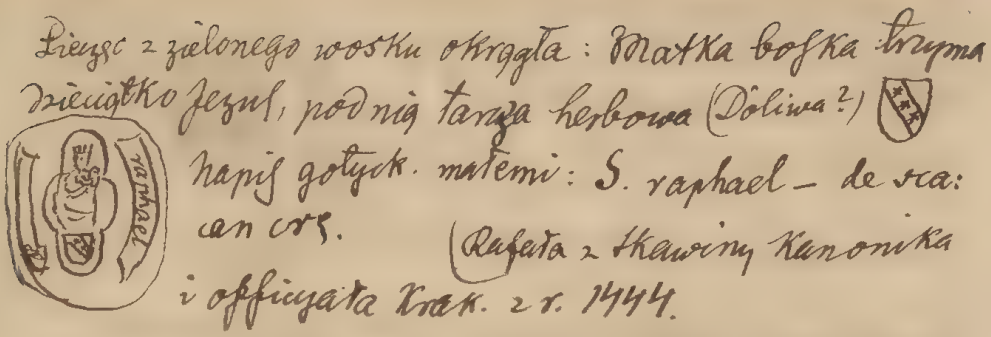 Pieczęć z zielonego wosku okrągła: Matka boska trzyma
Dzieciątko Jezus, pod nią tarcza herbowa (Doliwa?)
raphael
Napis gotyck. małemi: S. raphael – de sca:
can crs.
(Rafała z Skawiny Kanonika
i officyała Krak. z r. 1444.